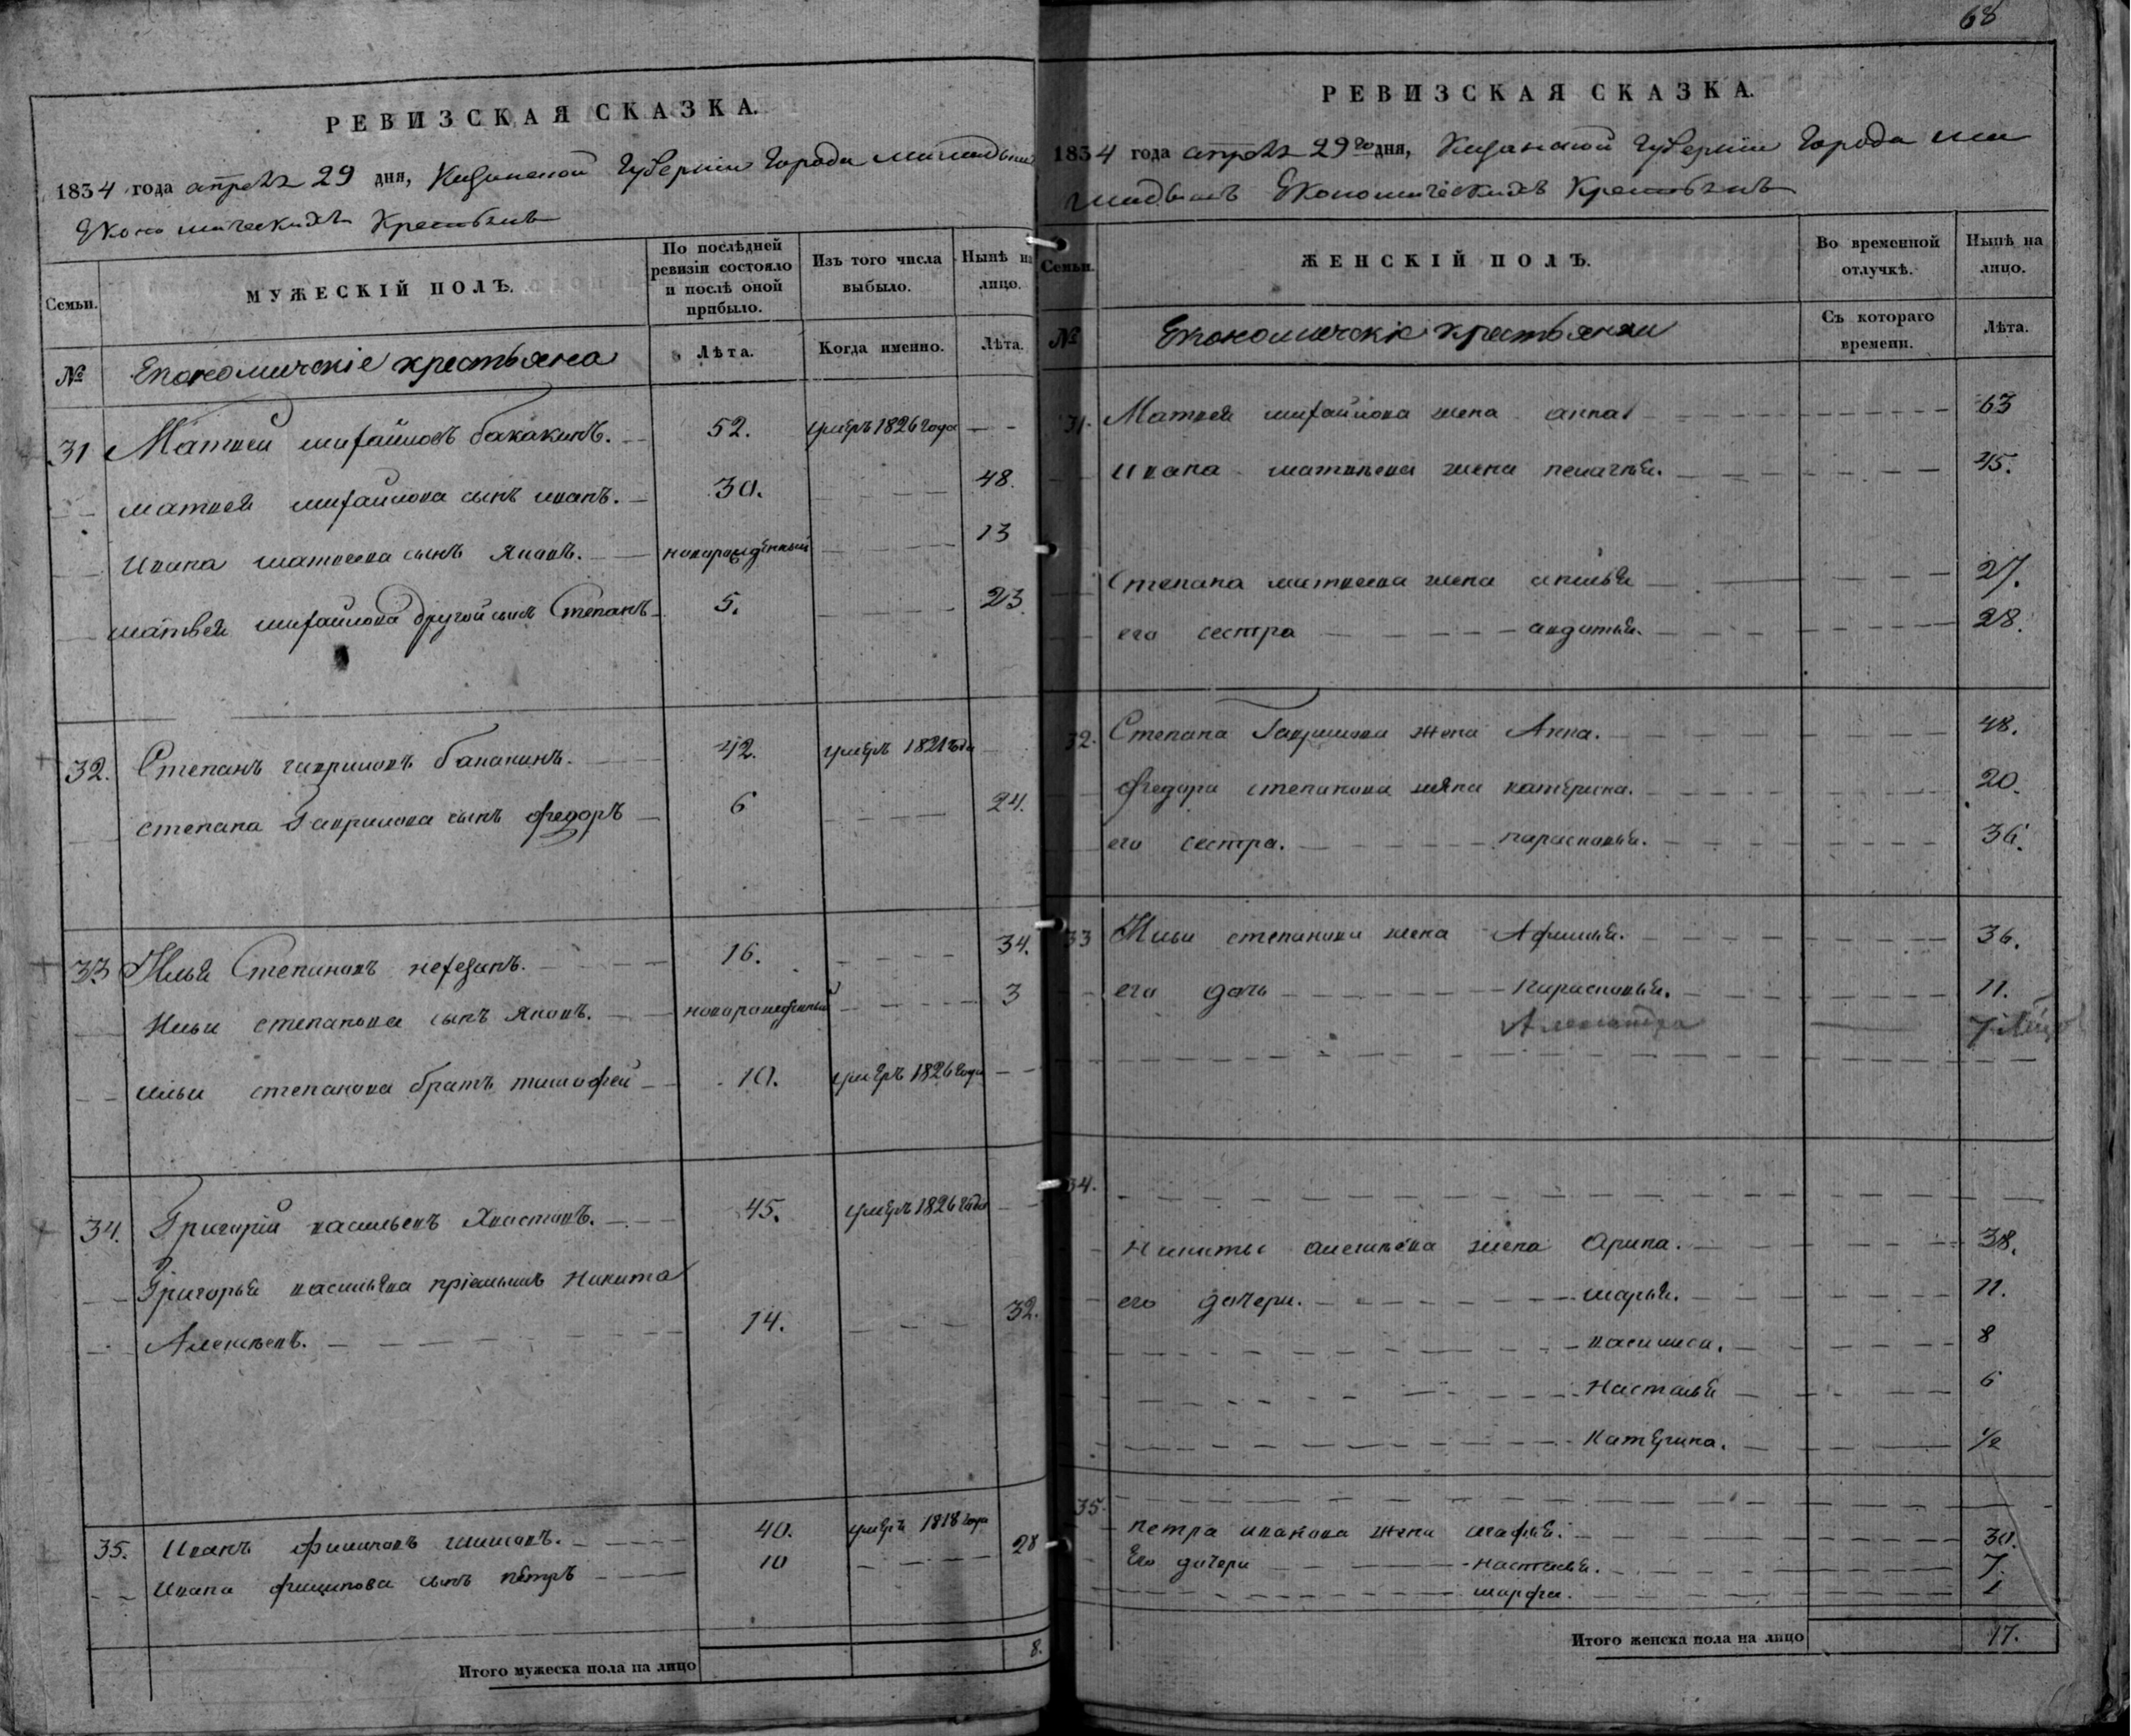 68
РЕВИЗСКАЯ СКАЗКА.
1834 года апреля 29 дня, Казанской Губернии Города
Економическихъ Крестьянъ
Семьи.
МУЖЕСКІЙ ПОЛЪ.
По послѣдней ревизіи состояло и послѣ оной прибыло.
Изъ того числа выбыло.
Нынѣ на лицо.
№
Економическіе крестьяна
Лѣта.
Когда именно.
Лѣта.
31 Матвей михайловъ бакакинъ. 52. умеръ 1826 года
матвея михайлова сынъ иванъ. 30. 48.
Ивана матвеева сынъ яковъ. новарожденный 13
матвея михайлова другой сынъ Степанъ 5. 23.
32. Степанъ гавриловъ бакакинъ. 42. умеръ 1821 года
степана Гаврилова сынъ федоръ 6 24.
33 Илья Степановъ 16. 34.
Ильи степанова сынъ яковъ. новарожденный 3
ильи степанова братъ тимофей 10. умеръ 1826 года
34. Григорий васильевъ Хвастовъ. 45. умеръ 1826 года
Григорья васильева пріемышъ Никита
Алексеевъ. 14. 32.
35. Иванъ филиповъ шишовъ. 40. умеръ 1818 года
Ивана филипова сынъ петръ 10 28
Итого мужеска пола на лицо 8.
РЕВИЗСКАЯ СКАЗКА.
1834 года апреля 29го дня, Казанской Губернии Города
Економическихъ Крестьянъ
Семьи.
ЖЕНСКІЙ ПОЛЪ.
Во временной отлучкѣ.
Нынѣ на лицо.
№
Економическіе крестьянки
Съ котораго времени.
Лѣта.
31. Матвея михайлова жена анна 63
Ивана матвеева жена пелагея. 45.
Степана матвеева жена 27.
его сестра авдотья. 28.
32. Степана Гаврилова жена Анна. 48.
федора степанова жена катерина. 20.
его сестра. парасковья. 36.
33 Ильи степанова жена Афимья. 36.
его дочь Парасковья. 11.
Александра 7
34.
Никиты алексеева жена Арина. 38.
его дочери. марья. 11.
василиса. 8
Настасья 6
Катерина. 1/2
35.
петра иванова жена 30.
Его дочери настасья. 7.
марфа. 1
Итого женска пола на лицо 17.